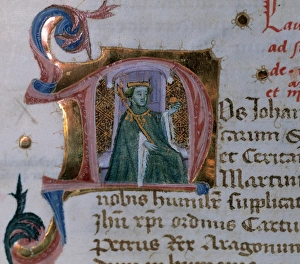 Lau
ad s
de
et m
Nos Johan
carum S
et Cerita
Martin
nobis humilem supplicat
Jhu xpi ordinis Cartu
Petrus Rex Aragonum